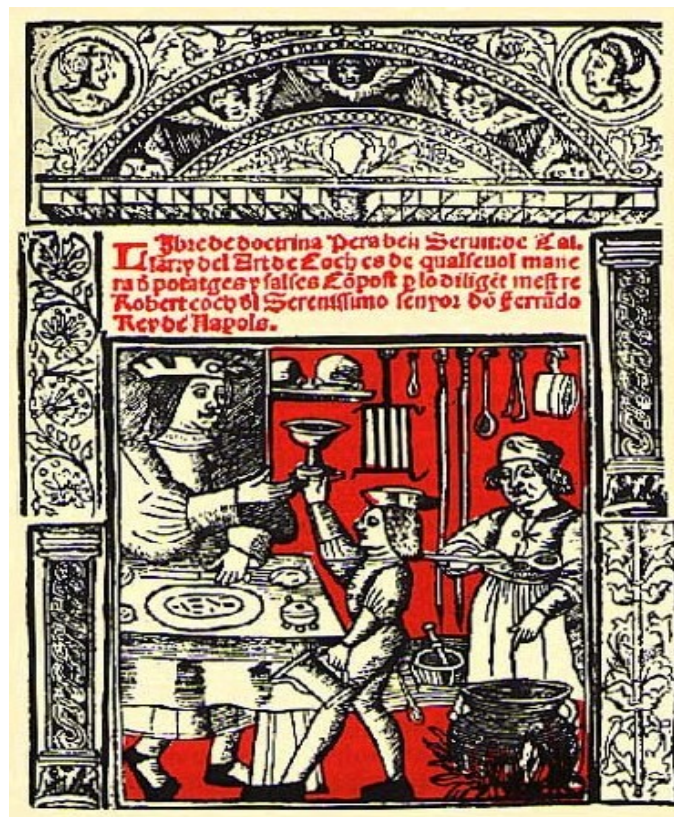 Libre de doctrina Pera ben Seruir: de Tal-
lar: y del Art de Coch cs de qualseuol mane
ra d̄ potatges y salses Cōpost p lo diligēt mestre
Robert coch d̄l Serenissimo senyor dō Ferrādo
Rey de Napols.